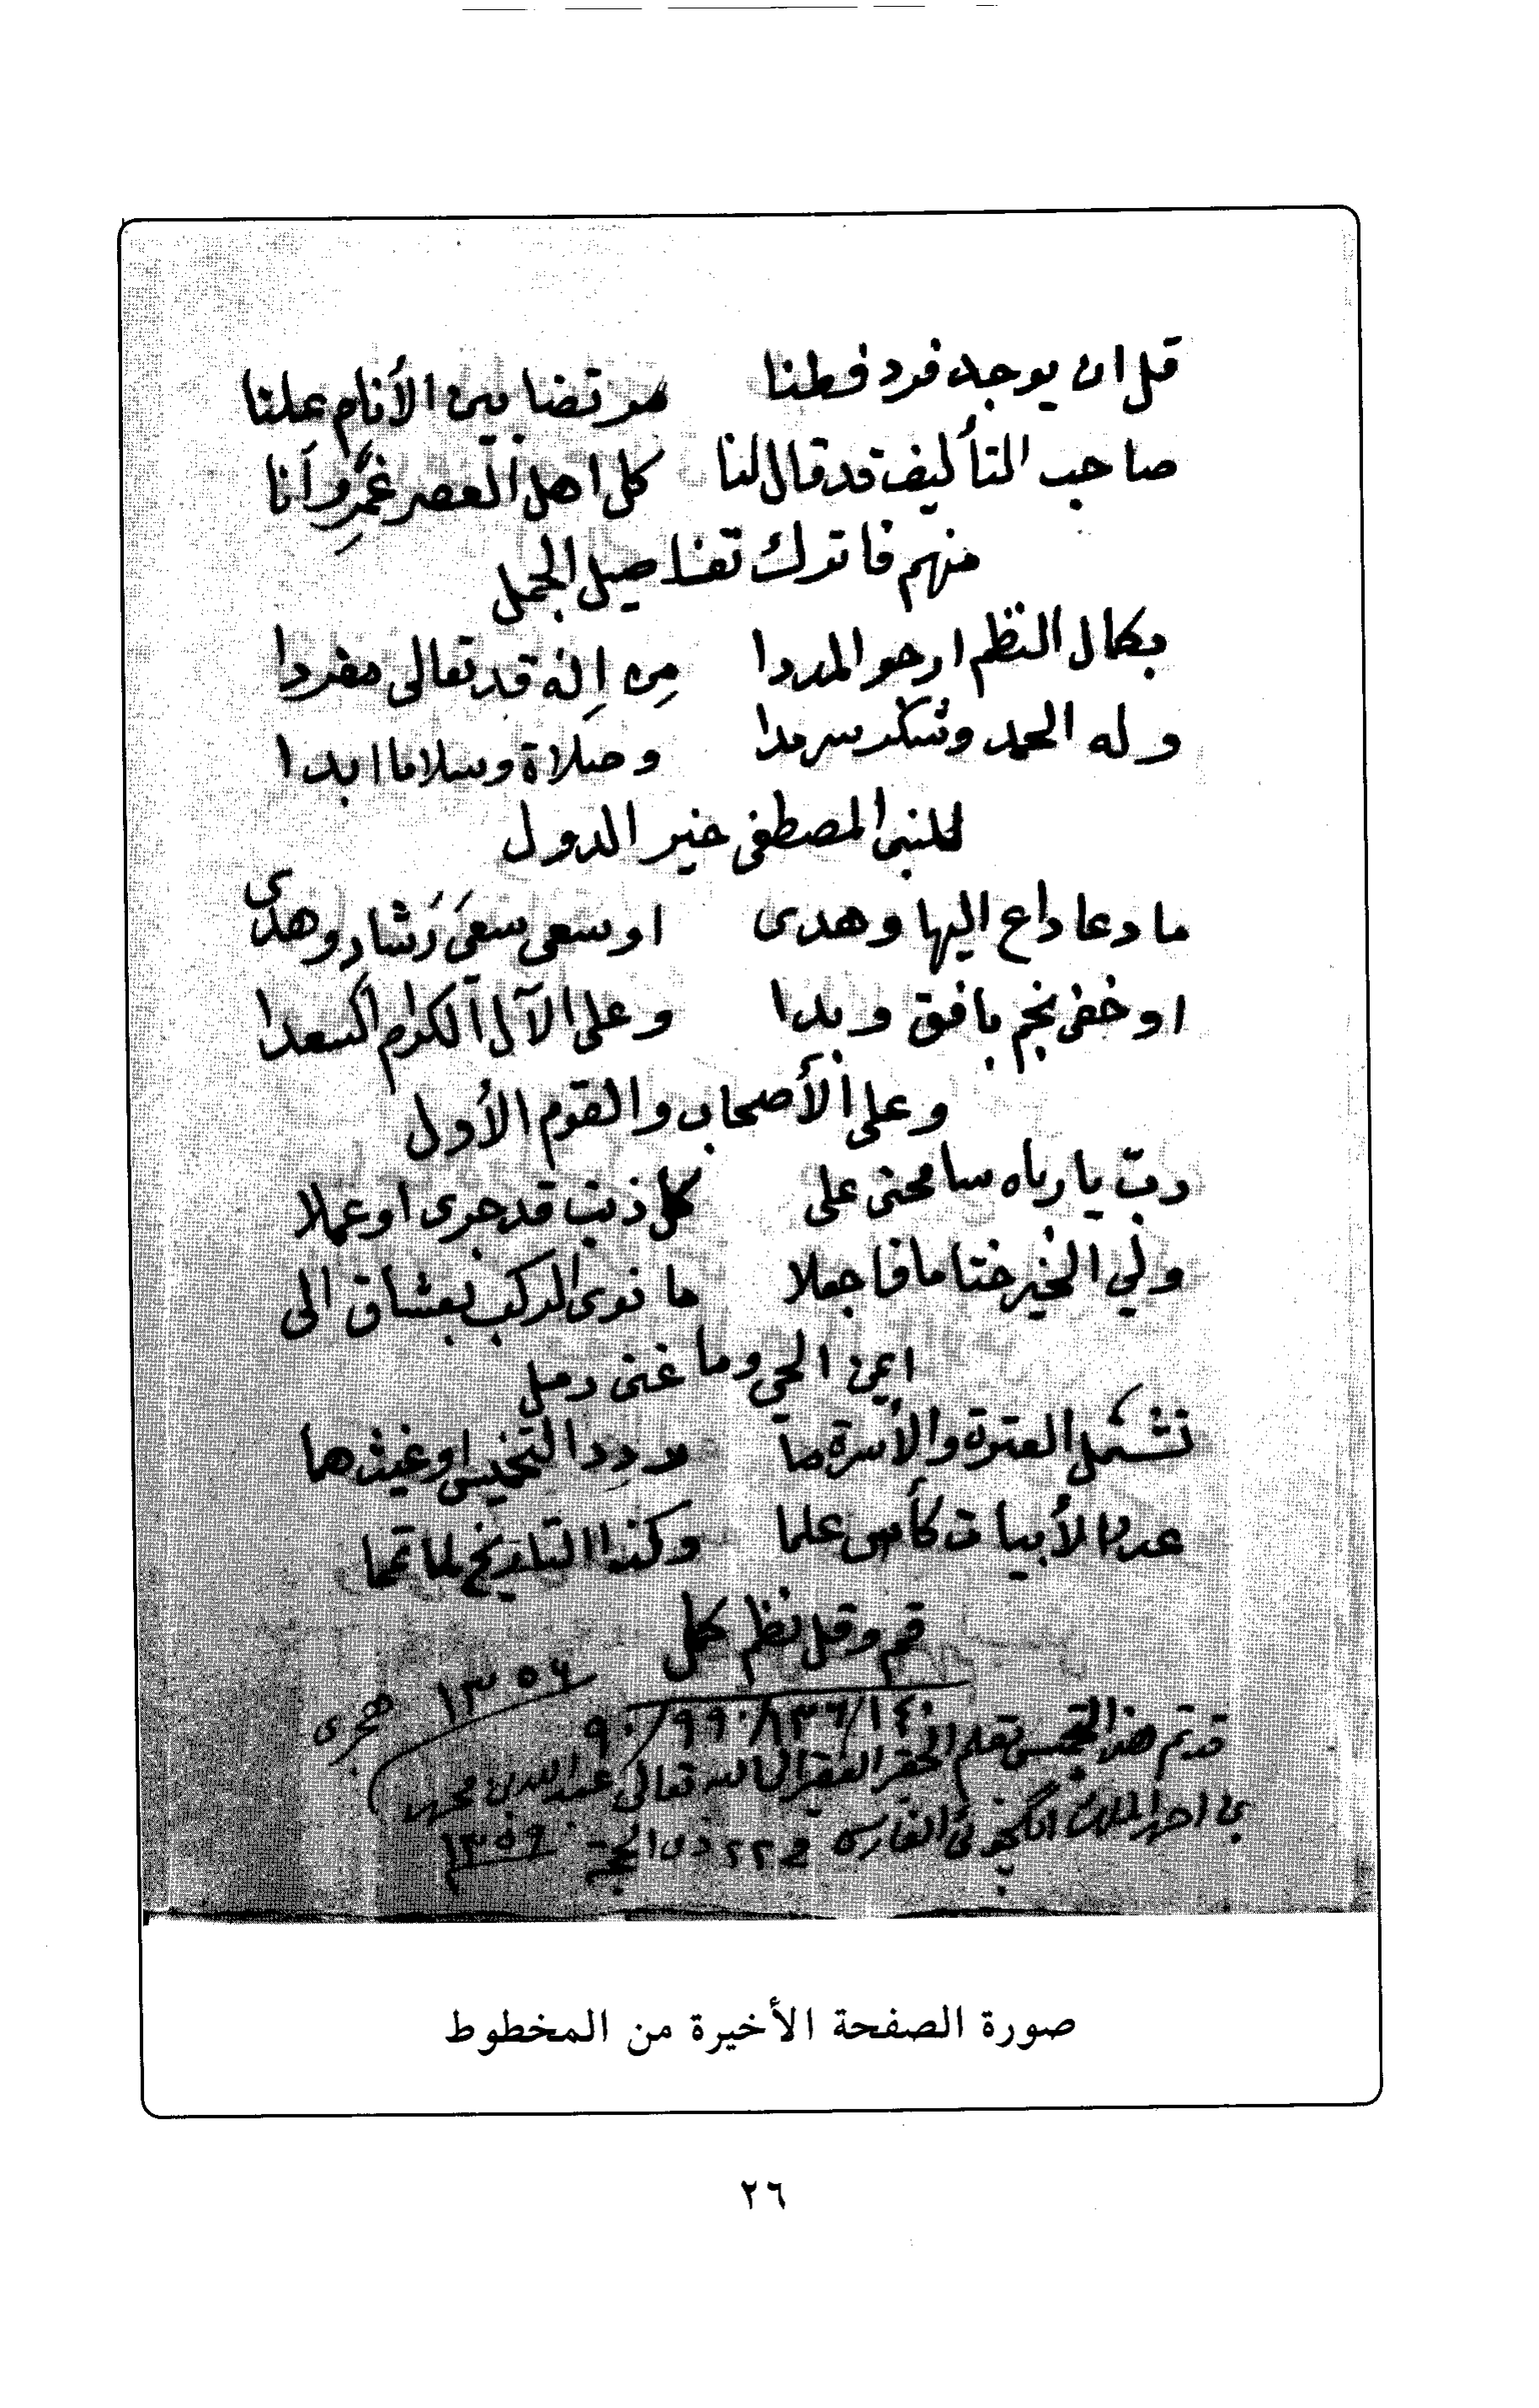 قل ان يوجد فرد فطنا مرتضا بين الأنام علنا
صاحب التأليف قد قال لنا كل اهل العصر غمر وأنا
منهم فاترك تفاصيل الجمل
بكمال النظم ارجو المددا من إله قد تعالى مفردا
وله الحمد وشكر سرمدا وصلاة وسلاما ابدا
للنبي المصطفى خير الدول
ما دعا داع اليها وهدى او سعى سعي رشاد وهدى
او خفى نجم بافق وبدا وعلى الآل الكرام السعدا
وعلى الأصحاب والقوم الأول
رب يا رباه سامحني على كل ذنب قد جرى او عملا
ولي الخير ختاما فاجعلا ما نوى الركب بعشاق الى
ايمن الحي وما غنى رمل
تشمل العترة والأسرة ما ردد التخميس او غيث هما
عدد الأبيات كأس علما وكذا التاريخ لما تمما
قم وقل نظم كمل
١٤٠/١٣٦/٩٩٠/٩٠ ١٣٥٦ هجرى
قد تم هذا التخميس بقلم الحقير الفقير الى الله تعالى عبد الله بن محمد
بن احمد الفارسي في ٢٢ ذى الحجة ١٣٥٦
صورة الصفحة الأخيرة من المخطوط
٢٦